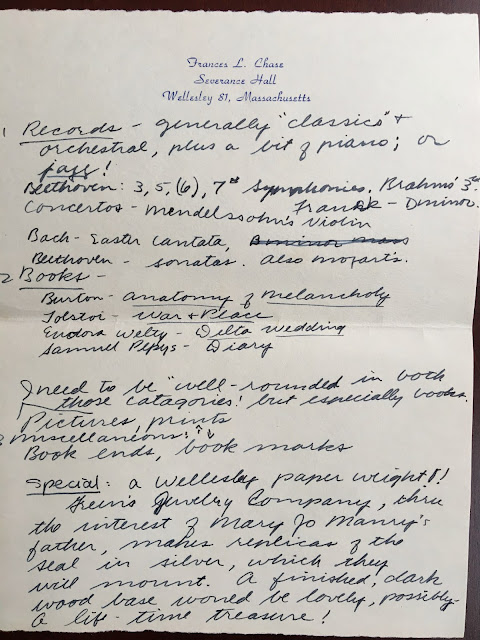 Frances L. Chase
Severance Hall
Wellesley 81, Massachusetts
1 Records - generally "classics" +
orchestral, plus a bit of piano; or
jazz!
Beethoven: 3, 5, (6), 7th Symphonies. Brahms' 3rd
Concertos - Mendelssohn's Violin Frank - D minor.
Bach - Easter Cantata, B minor Mass
Beethoven - sonatas. Also Mozart's.
2 Books -
Burton - Anatomy of Melancholy
Tolstoi - War & Peace
Eudora Welty - Delta Wedding
Samuel Pepys - Diary
I need to be "well-rounded in both
those catagories! but especially books.
Pictures, prints
3 miscellaneous:
Book ends, book marks
Special: a Wellesley paper weight!!
Jewelry Company, thru
the interest of Mary Jo
father, makes replicas of the
seal in silver, which they
will mount. A finished, dark
wood base would be lovely, possibly
a life-time treasure!